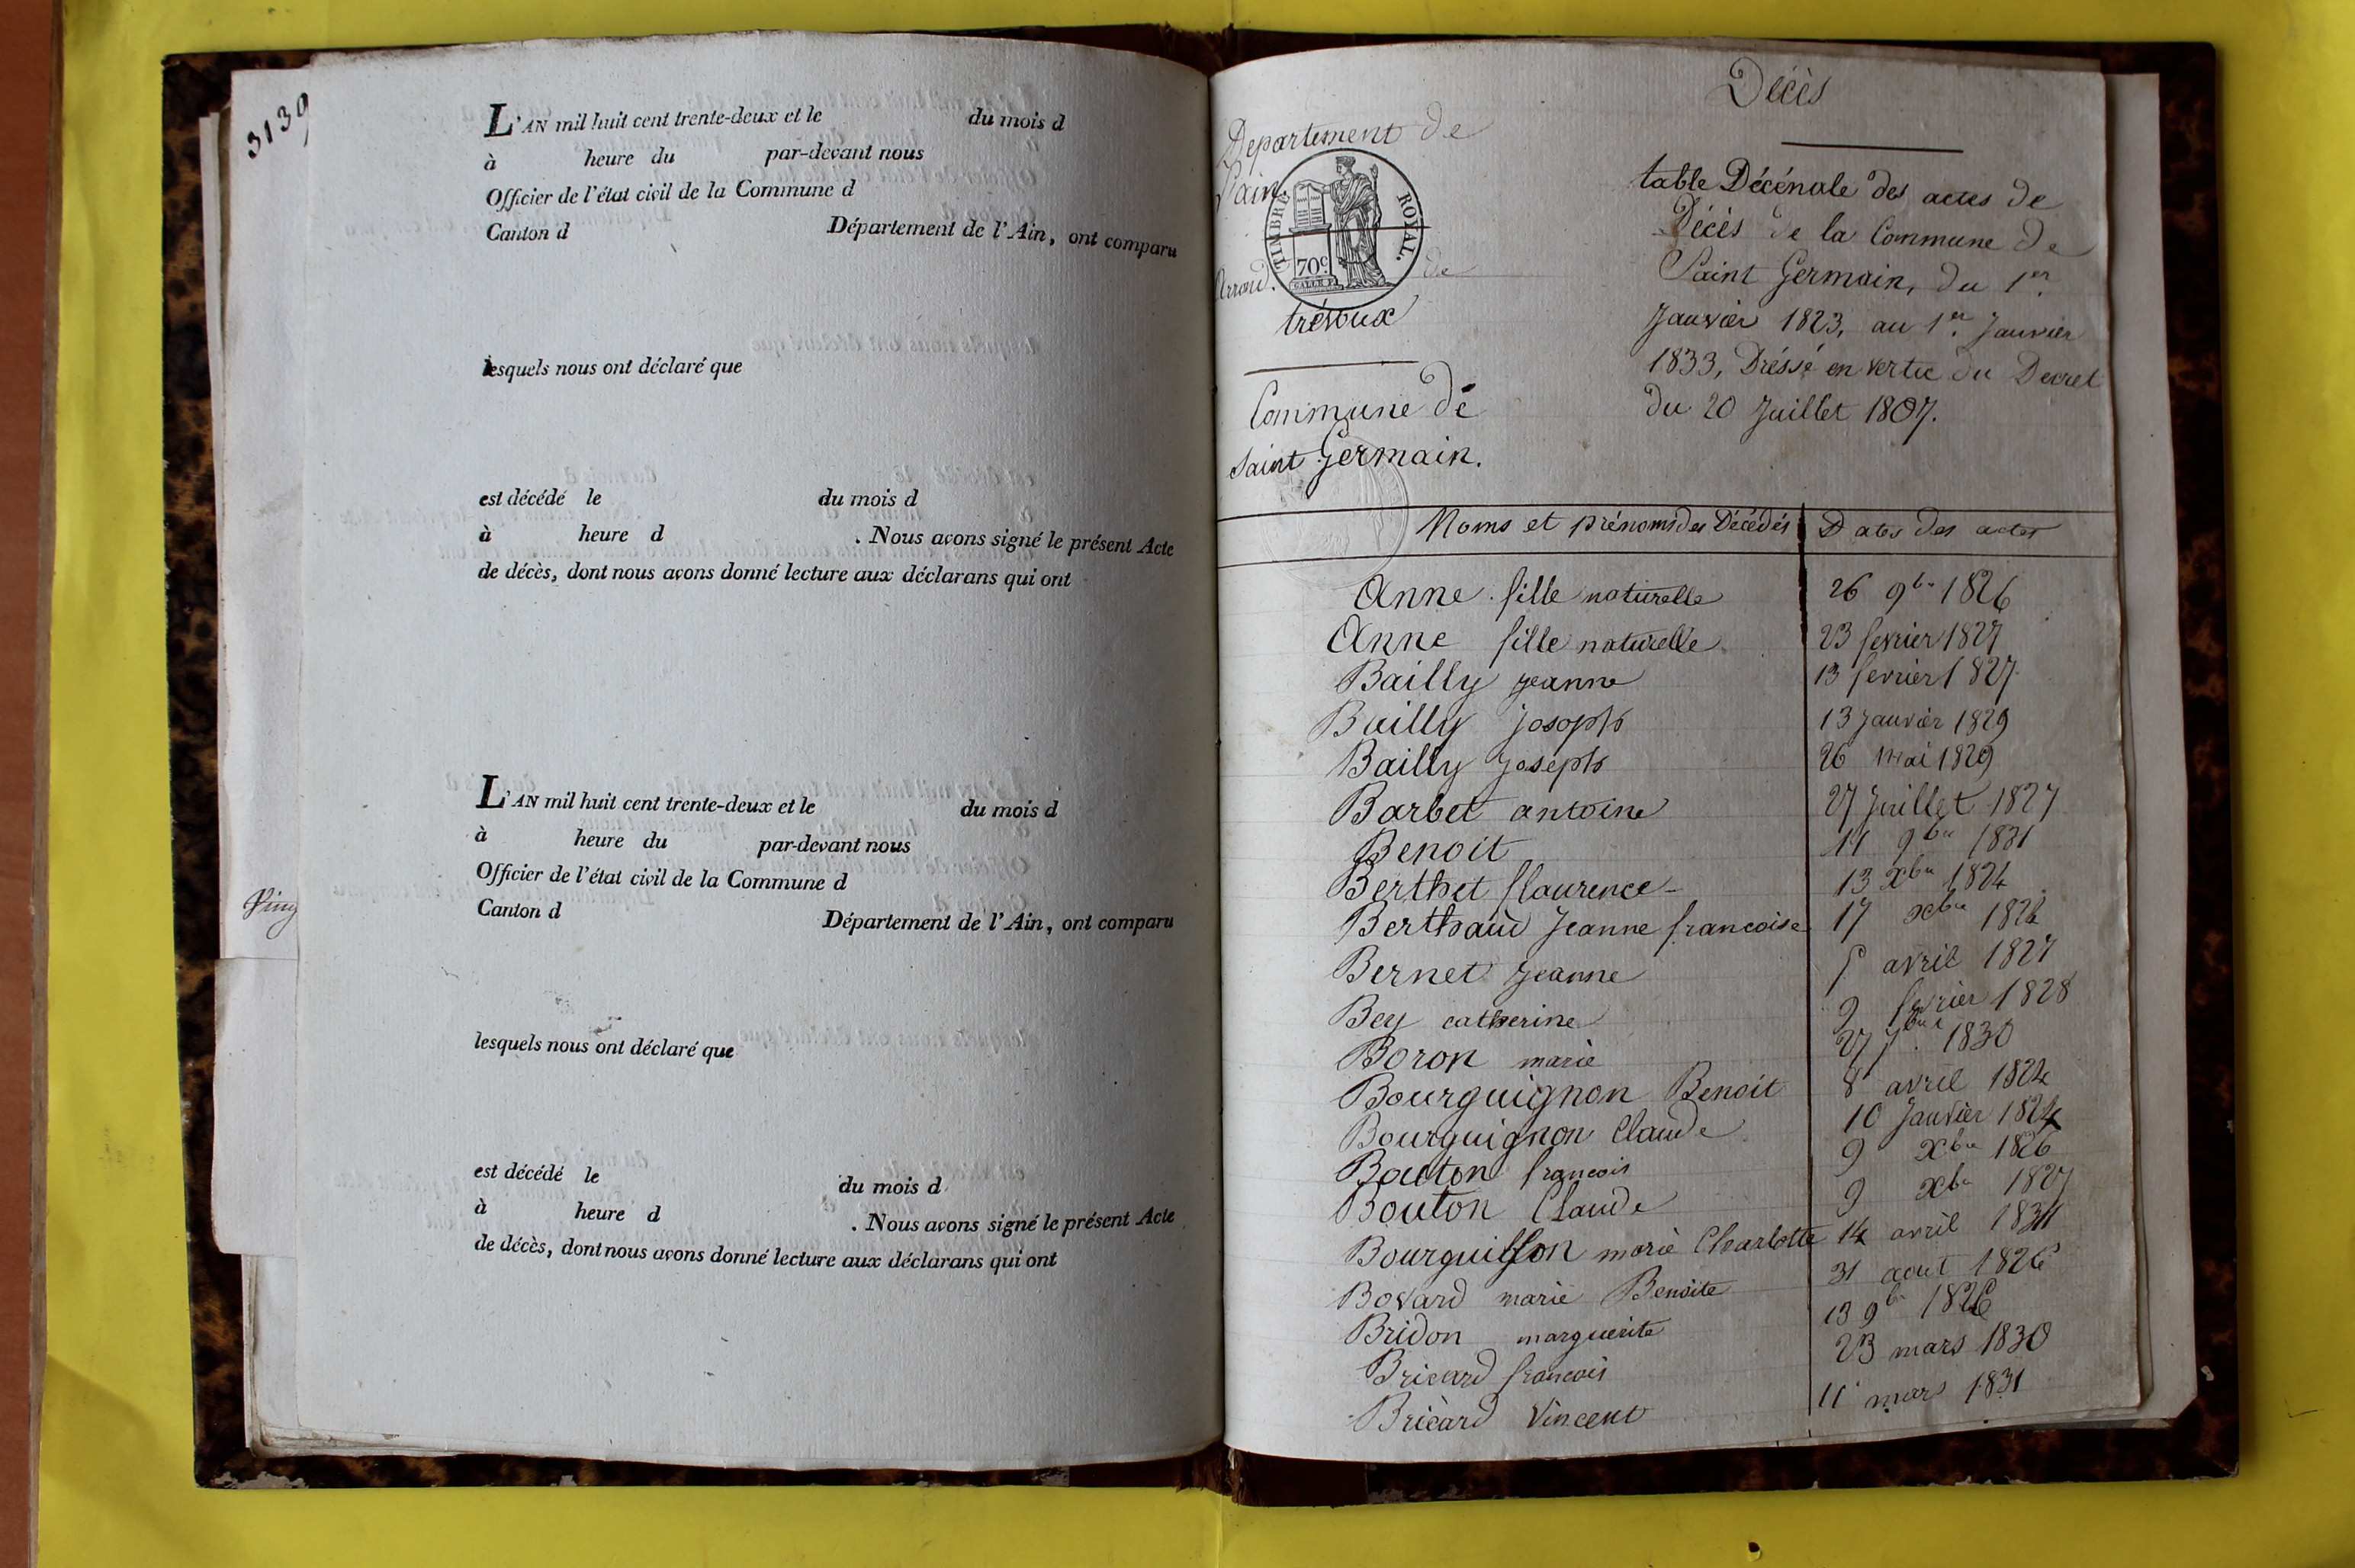 3139
L'AN mil huit cent trente-deux et le du mois d
à heure du par-devant nous
Officier de l'état civil de la Commune d
Canton d Département de l'Ain, ont comparu
lesquels nous ont déclaré que
est décédé le du mois d
à heure d . Nous avons signé le présent Acte
de décès, dont nous avons donné lecture aux déclarans qui ont
L'AN mil huit cent trente-deux et le du mois d
à heure du par-devant nous
Officier de l'état civil de la Commune d
Canton d Département de l'Ain, ont comparu
lesquels nous ont déclaré que
est décédé le du mois d
à heure d . Nous avons signé le présent Acte
de décès, dont nous avons donné lecture aux déclarans qui ont
Décès
Departement de
l'ain
TIMBRE ROYAL.
70c
Arrond. de
trévoux
Commune de
saint Germain.
table Décénale des actes de
Décès de la Commune de
Saint Germain, du 1er
Janvier 1823, au 1er Janvier
1833, Dréssé en vertu du Decret
du 20 Juillet 1807.
Noms et prénoms des Décédés Dates des actes
Anne fille naturelle 26 9bre 1826
Anne fille naturelle 23 fevrier 1827
Bailly jeanne 13 fevrier 1827
Bailly joseph 13 janvier 1829
Bailly joseph 26 mai 1829
Barbet antoine 27 Juillet 1827
Benoit 11 9bre 1831
Berthet flaurence 13 xbre 1824
Berthaud Jeanne francoise 17 xbre
Bernet jeanne 5 avril 1827
Bey catherine 9 fevrier 1828
Boron marie 27 7bre 1830
Bourguignon Benoit 8 avril 1824
Bourguignon Claude 10 Janvier 1824
Bouton francois 9 xbre 1826
Bouton Claude 9 xbre 1827
Bourguisson marie Charlotte 14 avril
Bovard marie Benoite 31 aout 1826
Bridon marguerite 13 9bre 1826
Bricard francois 23 mars 1830
Bricard Vincent 11 mars 1831